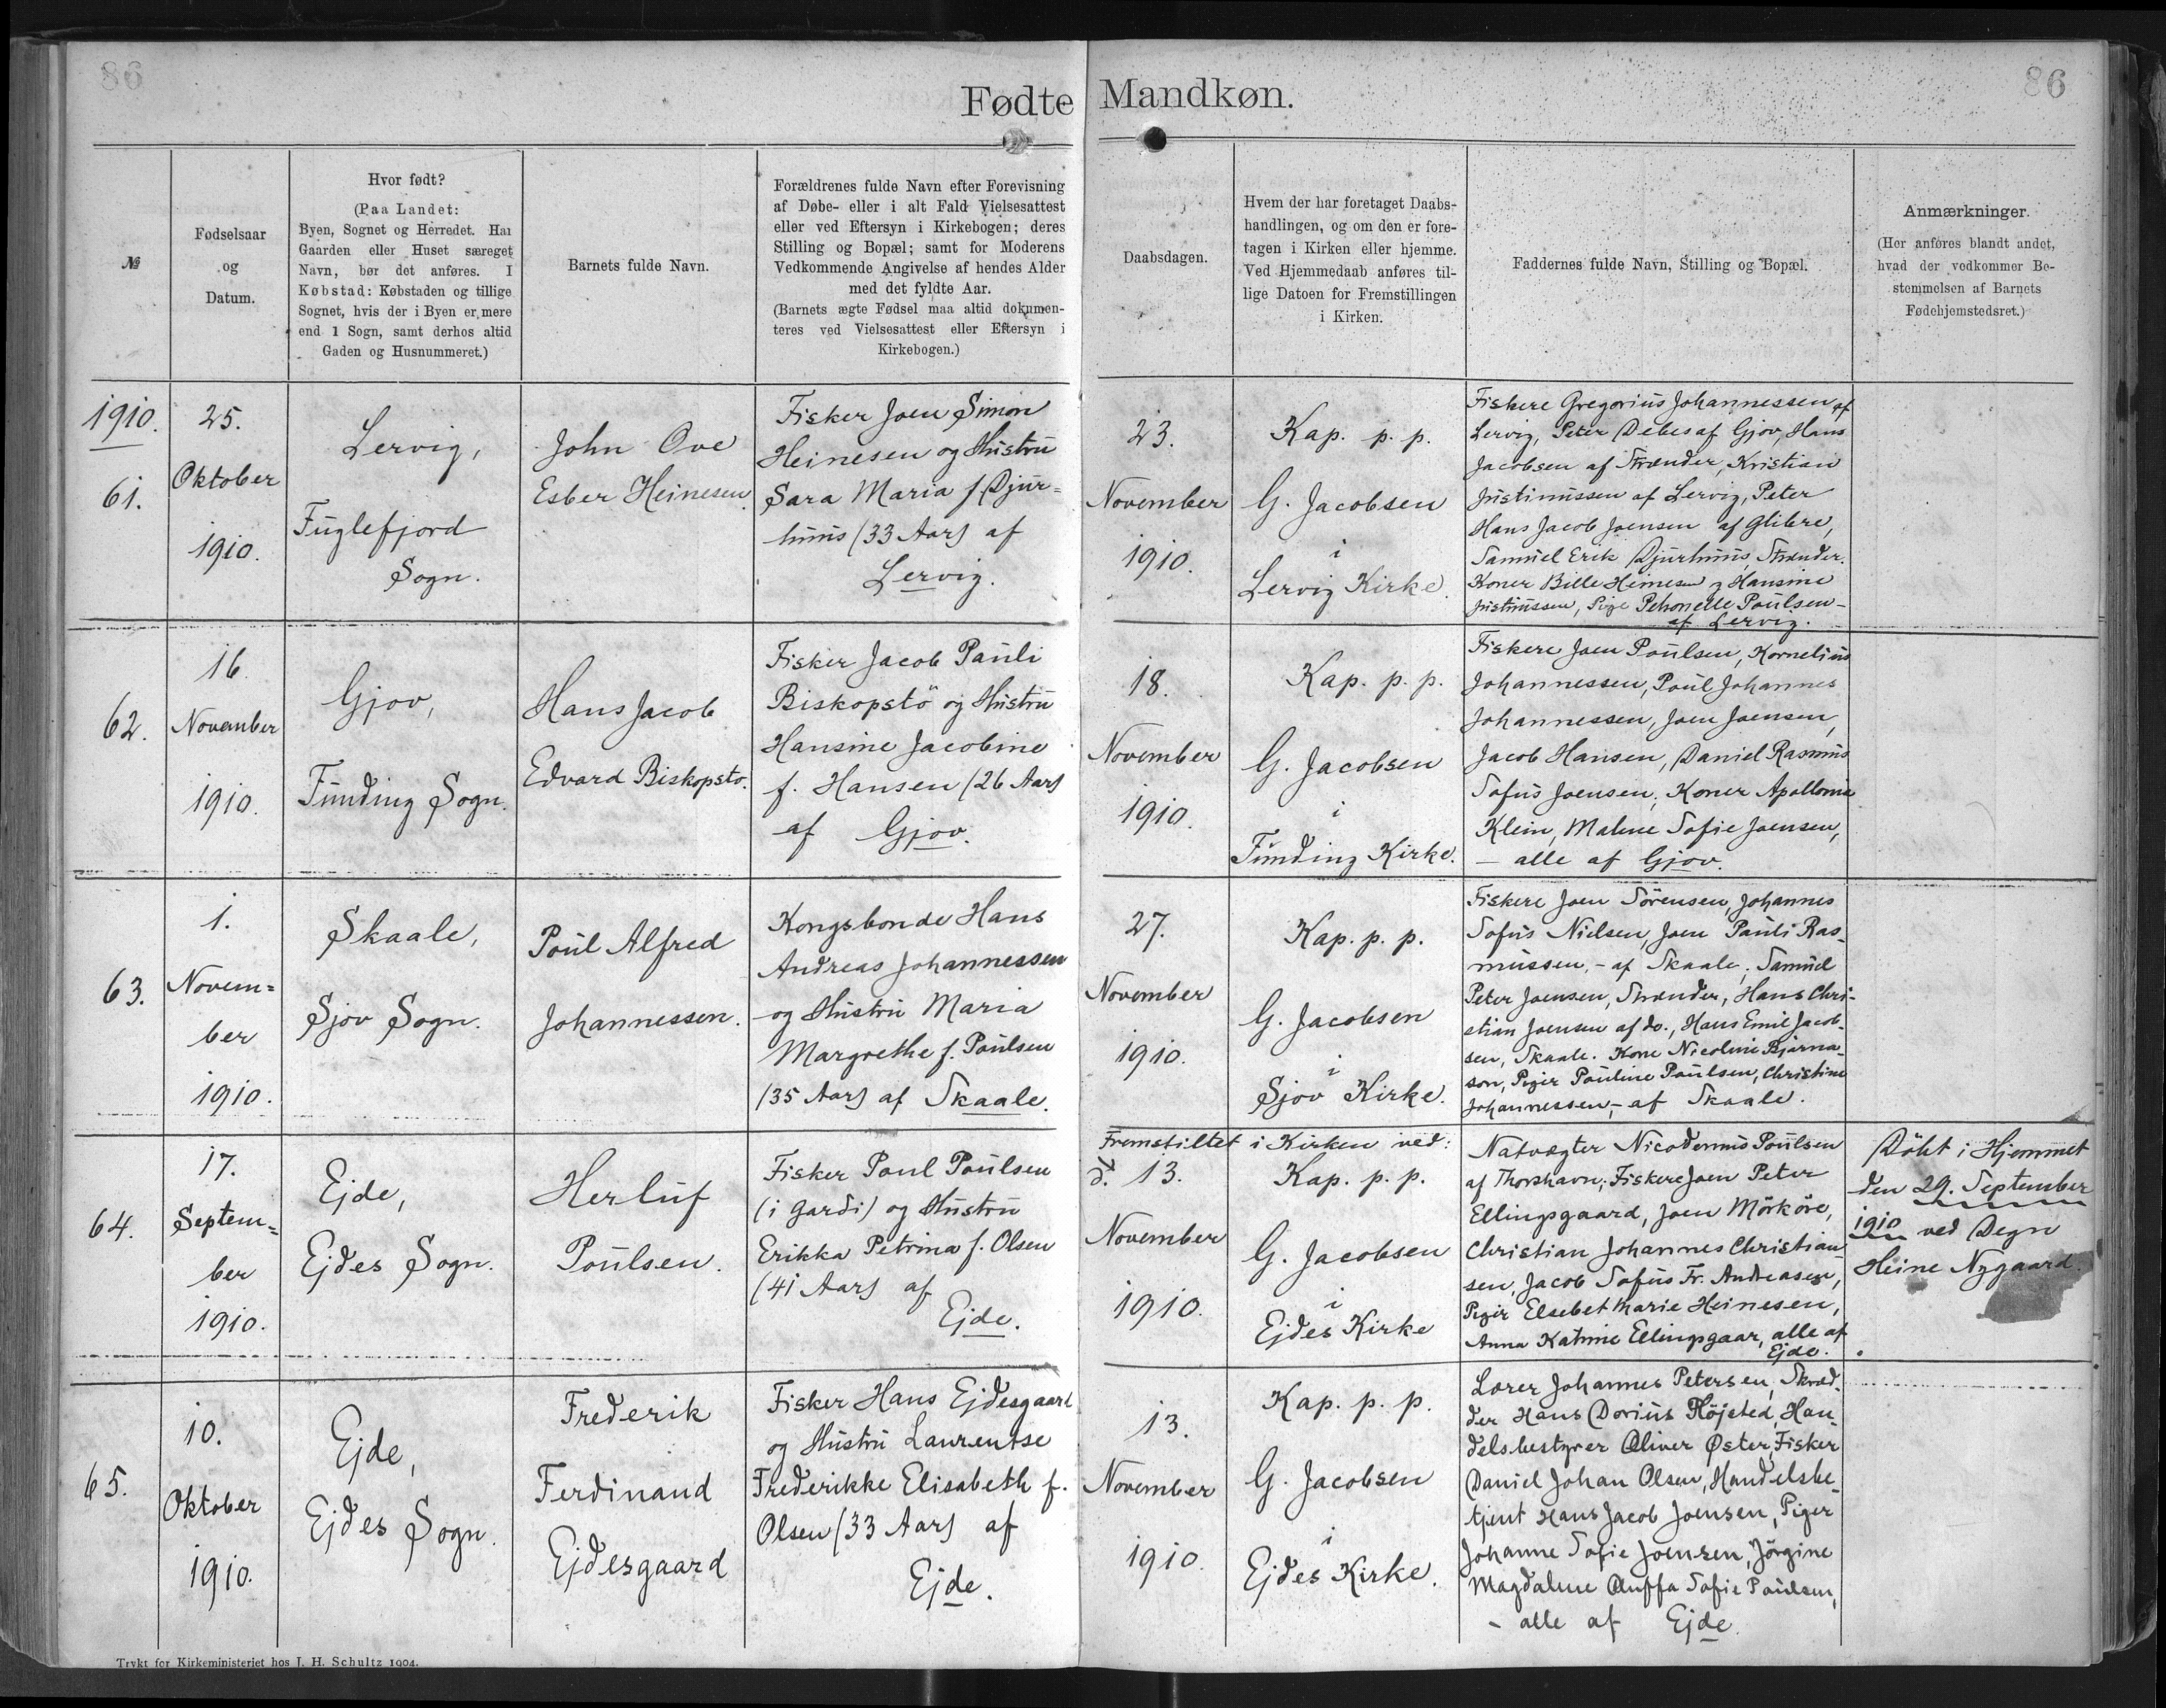 86
86
Fødte Mandkøn.
№
Fødselsaar
og
Datum.
Hvor født?
(Paa Landet:
Byen, Sognet og Herredet. Har
Gaarden eller Huset særeget
Navn, bør det anføres. I
Købstad: Købstaden og tillige
Sognet, hvis der i Byen er mere
end 1 Sogn, samt derhos altid
Gaden og Husnummeret.)
Barnets fulde Navn.
Forældrenes fulde Navn efter Forevisning
af Døbe- eller i alt Fald Vielsesattest
eller ved Eftersyn i Kirkebogen; deres
Stilling og Bopæl; samt for Moderens
Vedkommende Angivelse af hendes Alder
med det fyldte Aar.
(Barnets ægte Fødsel maa altid dokumen-
teres ved Vielsesattest eller Eftersyn i
Kirkebogen.)
Daabsdagen.
Hvem der har foretaget Daabs-
handlingen, og om den er fore-
tagen i Kirken eller hjemme.
Ved Hjemmedaab anføres til-
lige Datoen for Fremstillingen
i Kirken.
Faddernes fulde Navn, Stilling og Bopæl.
Anmærkninger.
(Her anføres blandt andet,
hvad der vedkommer Be-
stemmelsen af Barnets
Fødehjemstedsret.)
1910.
61.
25.
Oktober
1910.
Lervig,
Fuglefjord
Sogn.
John Ove
Esber Heinesen.
Fisker Joen Simon
Heinesen og Hustru
Sara Maria f. Djur=
huus (33 Aar) af
Lervig.
23.
November
1910.
Kap. p. p.
G. Jacobsen
i
Lervig Kirke.
Fiskere Gregorius Johannessen af
Lervig, Peter Debes af Gjov, Hans
Jacobsen af Strænder, Kristian
Justinussen af Lervig, Peter
Hans Jacob Joensen af Glibre,
Samuel Erik Djurhuus, Strænder.
Koner Bille Heinesen og Hansine
Justinussen, Pige Petronelle Poulsen -
af Lervig.
62.
16.
November
1910.
Gjov,
Funding Sogn.
Hans Jacob
Edvard Biskopstø.
Fisker Jacob Pauli
Biskopstö og Hustru
Hansine Jacobine
f. Hansen (26 Aar)
af Gjov.
18.
November
1910.
Kap. p. p.
G. Jacobsen
i
Funding Kirke.
Fiskere Joen Poulsen, Kornelius
Johannessen, Poul Johannes
Johannessen, Joen Joensen,
Jacob Hansen, Daniel Rasmus
Sofus Joensen; Koner Apollonia
Klein, Malene Sofie Joensen,
- alle af Gjov.
63.
1.
Novem=
ber
1910.
Skaale,
Sjov Sogn.
Poul Alfred
Johannessen.
Kongsbonde Hans
Andreas Johannessen
og Hustru Maria
Margrethe f. Poulsen
(35 Aar) af Skaale.
27.
November
1910.
Kap. p. p.
G. Jacobsen
i
Sjov Kirke.
Fiskere Joen Sörensen, Johannes
Sofus Nielsen, Joen Pauli Ras-
mussen, - af Skaale. Samuel
Peter Joensen, Strænder, Hans Chri-
stian Joensen af do., Hans Emil Jacob-
sen, Skaale. Kone Nicoline Bjarna-
son, Piger Pouline Poulsen, Christine
Johannessen, - af Skaale.
64.
17.
Septem=
ber
1910.
Ejde,
Ejdes Sogn.
Herluf
Poulsen.
Fisker Poul Poulsen
(i Gardi) og Hustru
Erikka Petrina f. Olsen
(41 Aar) af
Ejde.
Fremstillet i Kirken ved:
d. 13.
November
1910.
Kap. p. p.
G. Jacobsen
i
Ejdes Kirke
Natvægter Nicodemus Poulsen
af Thorshavn; Fiskere Joen Peter
Ellingsgaard, Joen Mörköre,
Christian Johannes Christian-
sen, Jacob Sofus Fr. Andreasen,
Piger Elsebet Marie Heinesen,
Anna Katrine Ellingsgaar, alle af
Ejde.
Döbt i Hjemmet
den 29. September
1910 ved Degn
Heine Nygaard.
65.
10.
Oktober
1910.
Ejde,
Ejdes Sogn.
Frederik
Ferdinand
Ejdesgaard
Fisker Hans Ejdesgaard
og Hustru Laurentse
Frederikke Elisabeth f.
Olsen (33 Aar) af
Ejde.
13.
November
1910.
Kap. p. p.
G. Jacobsen
i
Ejdes Kirke.
Lærer Johannes Petersen, Skræd-
der Hans Dorius Höjsted, Han-
delsbestyrer Oliver Øster, Fisker
Daniel Johan Olsen, Handelsbe-
tjent Hans Jacob Joensen, Piger
Johanne Sofie Joensen, Jörgine
Magdalene Sofie Poulsen,
- alle af Ejde.
Trykt for Kirkeministeriet hos J. H. Schultz 1904.